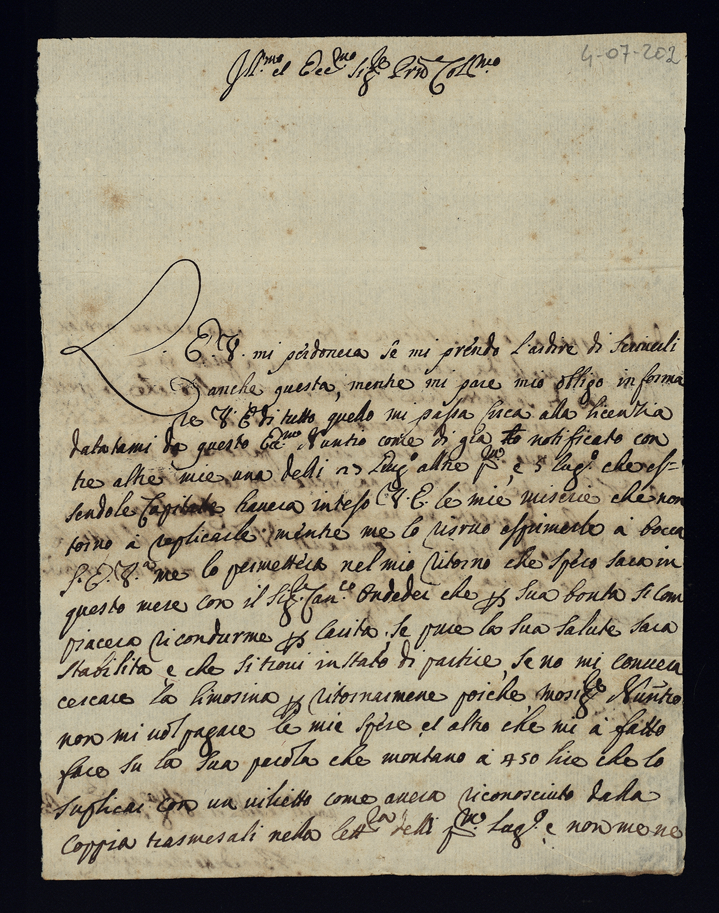 4-07-202
Ill.mo et Ecc.mo Sig.re Prõ Col.mo
L E V. mi perdonera se mi prendo l'ardire di scriverli
anche questa, mentre mi pare mio obligo informa
re V. E. di tutto quello mi passa circa alla licentia
datatami da questo Ecc.mo Nuntio come di gia notificato con
tre altre mie una delli 23 Lug.o altre p.mo, e 5 lug.o che es=
sendole Capitate havera inteso V. E. le mie miserie che non
torno a replicarle mentre me lo riservo esprimerle a bocca
S. E. V.a me lo permettera nel mio ritorno che spero sara in
questo mese con il Sig.r Can.co Ondedei che p sua bonta si com
piacera ricondurme p carita, se pure la sua salute sara
stabilita, e che si trovi in stato di partire se no mi convera
cercare la limosina p ritornarmene poiche mosig.re Nuntio
non mi vol pagare le mie spese et altro che mi à fatto
fare su la sua parola che montano à 450 lire che lo
suplicai con un vilietto come avera riconosciuto dalla
Coppia trasmesali nella lett.ra delli p.mo lug.o e non me ne